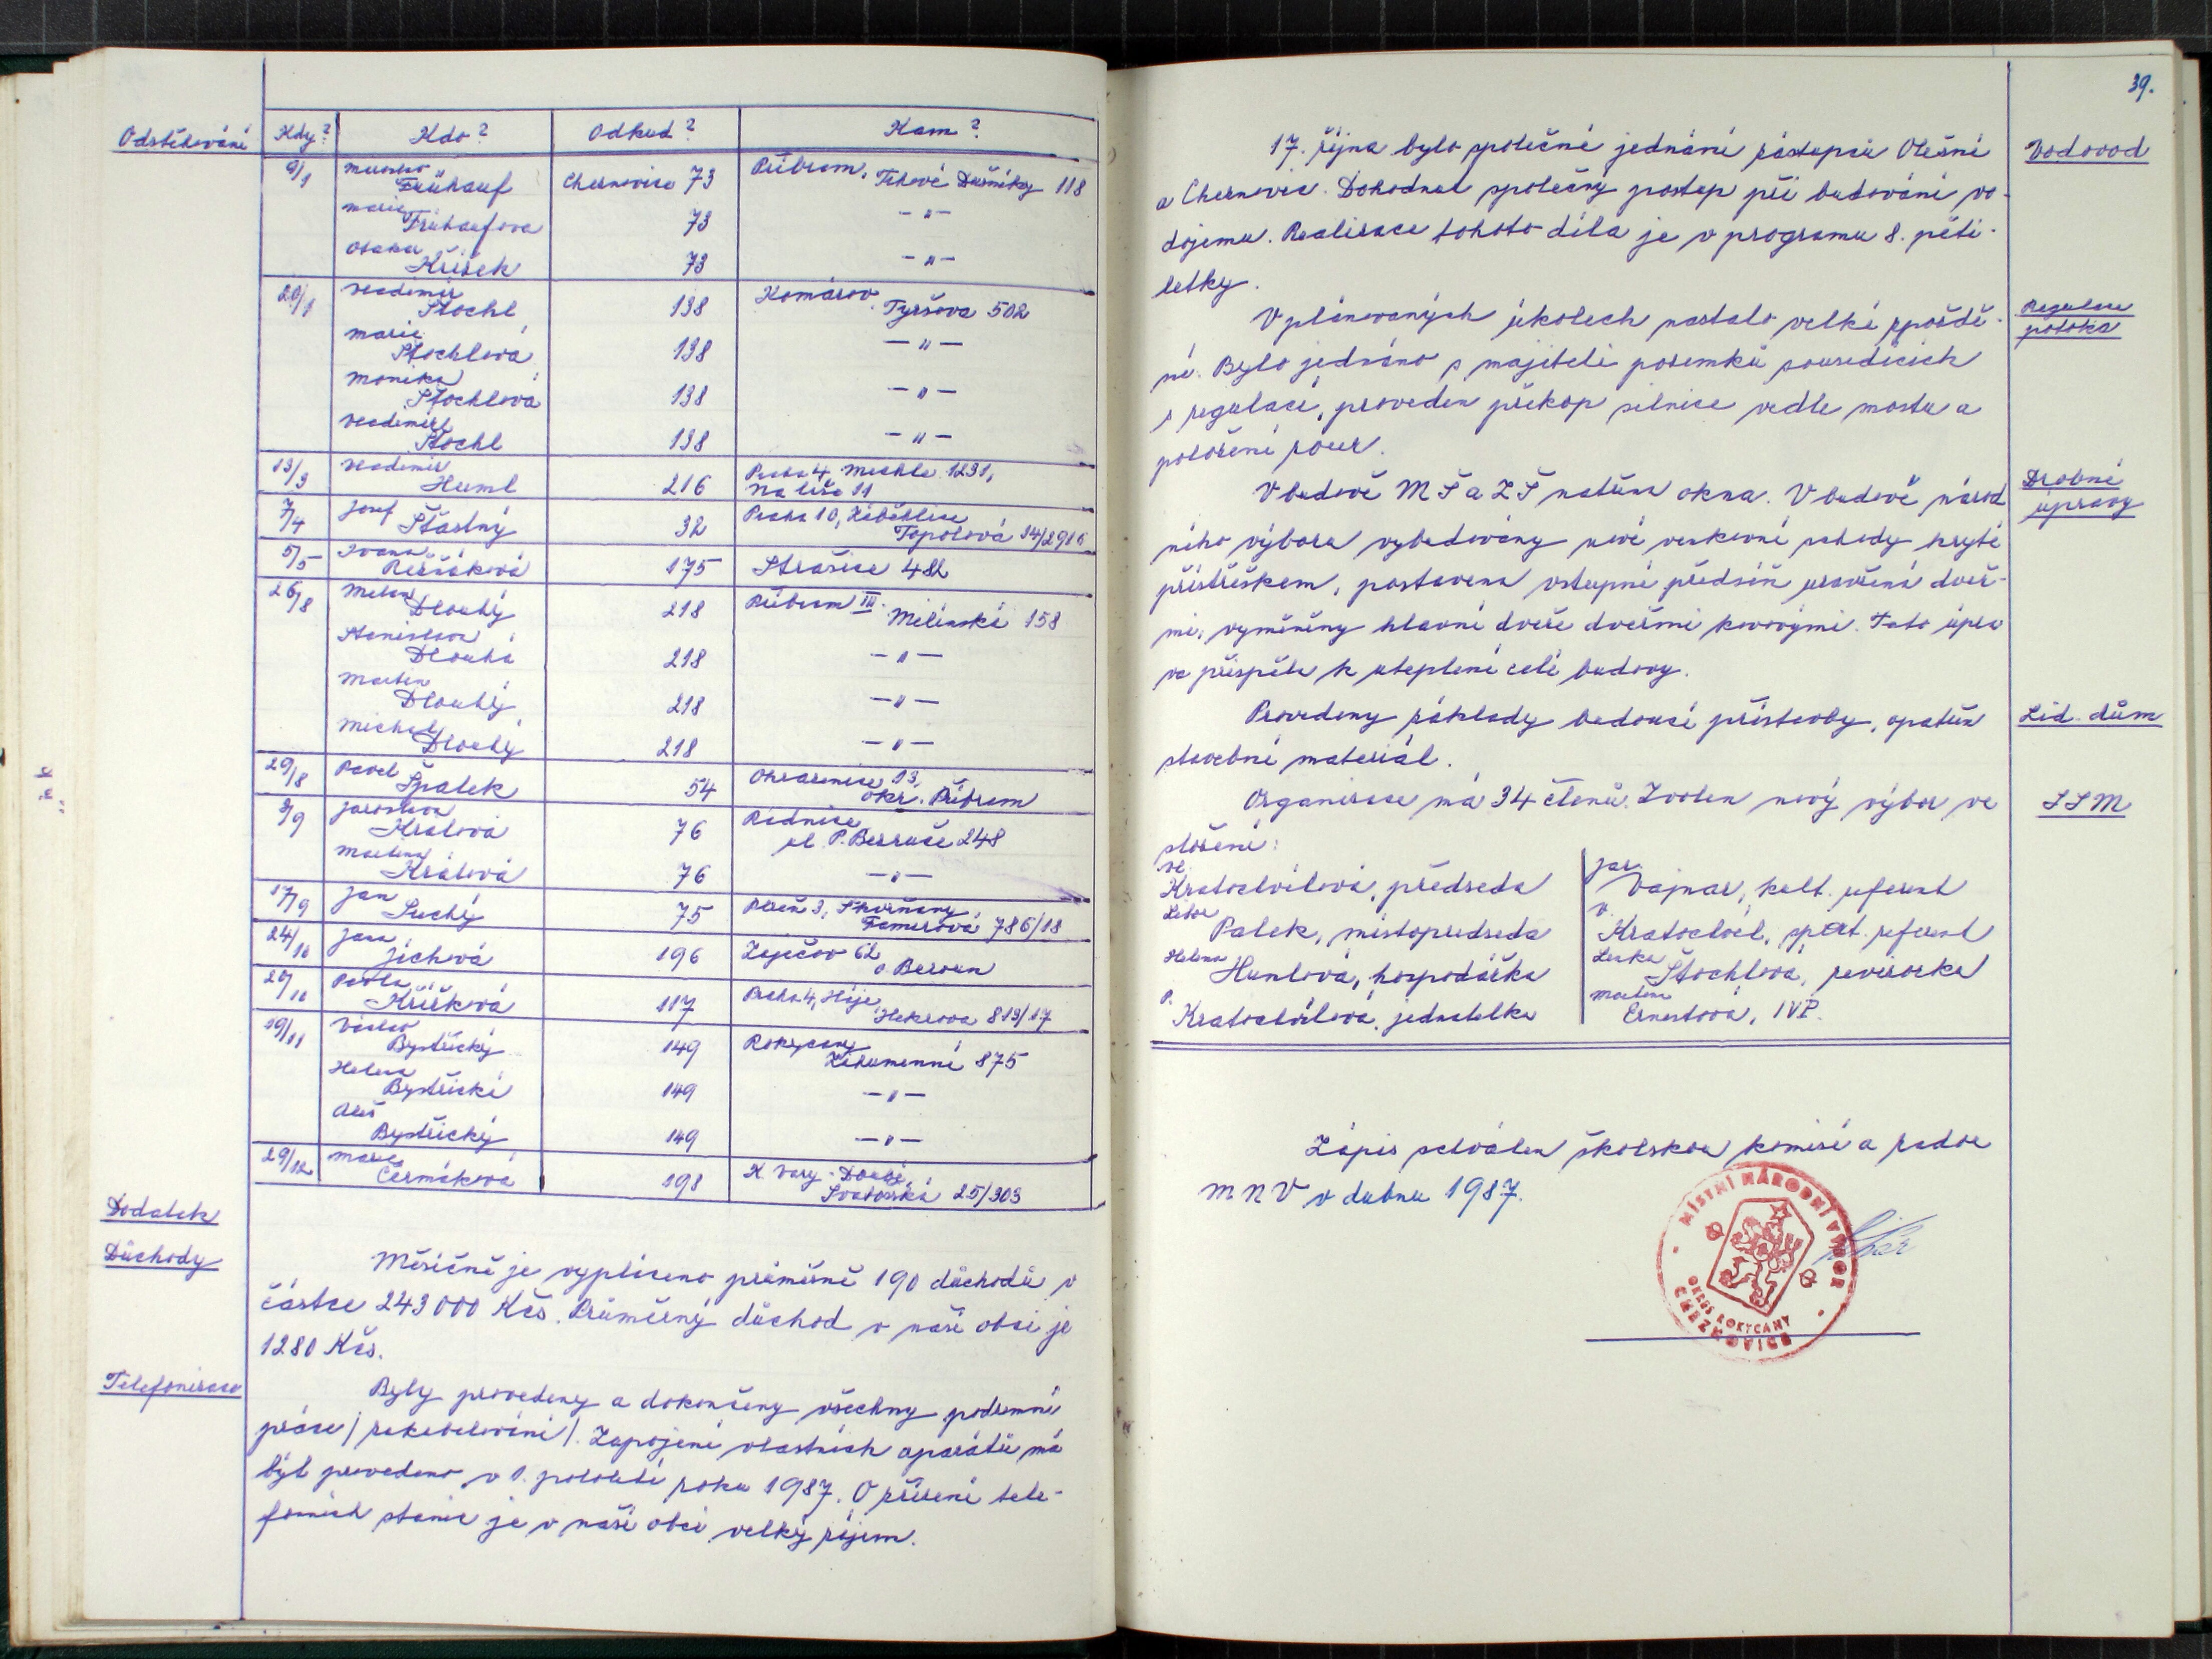 Odstěhování
Kdy? Kdo? Odkud? Kam?
9/1 Frühauf Chesnovice 73 Příbram, Trhové Dušníky 118
Marie Frühaufova 73 -"-
Otakar Křížek 73 -"-
20/1 Vladimír Štochl 138 Komárov Tyršova 502
Marie Štochlová 138 -"-
Monika Štochlová 138 -"-
Vladimír Štochl 138 -"-
13/3 Vladimír Huml 216 Praha 4 Michle 1231,
Na líše 11
7/4 Josef Šťastný 32 Praha 10, Záběhlice
Topolová 14/2916
5/5 Ivana 175 Strašice 482
26/8 Milan Dlouhý 218 Příbram III. Milínská 158
Stanislava Dlouhá 218 -"-
Martin Dlouhý 218 -"-
Michal Dlouhý 218 -"-
29/8 Pavel Špalek 54 Ohrazenice 13,
okr. Příbram
3/9 Jaroslava Králová 76 Radnice
ul. P. Bezruče 248
Martina Králová 76 -"-
17/9 Jan Suchý 75 Plzeň 3, Skvrňany
786/18
24/10 Jana Jíchová 196 Zaječov 62
o. Beroun
29/10 Pavla Křížková 117 Praha 4, Háje,
Hekrova 819/17
19/11 Václav Bystřický 149 Rokycany
Zahumenní 875
Helena Bystřická 149 -"-
Aleš Bystřický 149 -"-
29/12 Marie Čermáková 198 K. Vary - Doubí,
Svatošská 25/303
Dodatek
Důchody
Měsíčně je vypláceno průměrně 190 důchodů v
částce 243 000 Kčs. Průměrný důchod v naší obci je
1280 Kčs.
Telefonizace
Byly provedeny a dokončeny všechny podzemní
práce / zakabelování /. Zapojení vlastních aparátů má
být provedeno v 1. pololetí roku 1987. O zřízení tele-
fonních stanic je v naší obci velký zájem.
39.
17. října bylo společné jednání zástupců Olešné
Vodovod
a Chesnovic. Dohodnut společný postup při budování vo-
dojemu. Realizace tohoto díla je v programu 8. pěti-
letky.
V plánovaných úkolech nastalo velké zpoždě-
Regulace
potoka
ní. Bylo jednáno s majiteli pozemků sousedících
s regulací, proveden překop silnice vedle mostu a
položení rour.
V budově MŠ a ZŠ natřena okna. V budově národ
Drobné
úpravy
ního výboru vybudovány nové venkovní schody kryté
přístřeškem, postavena vstupní předsíň uzavřená dveř-
mi, vyměněny hlavní dveře dveřmi kovovými. Tato úpra
va přispěla k uteplení celé budovy.
Provedeny základy budoucí přístavby, opatřen
Lid. dům
stavební materiál.
Organizace má 34 členů. Zvolen nový výbor ve
SSM
složení:
Vl. Kratochvílová, předseda
Libor Palek, místopředseda
Helena Humlová, hospodářka
P. Kratochvílová, jednatelka
Jar. Vajnar, kult. referent
V. Kratochvíl, sport. referent
Lenka Štochlová, revizorka
Martina Ernestová, IVP.
Zápis schválen školskou komisí a radou
MNV v dubnu 1987.
MÍSTNÍ NÁRODNÍ VÝBOR
OKRES ROKYCANY